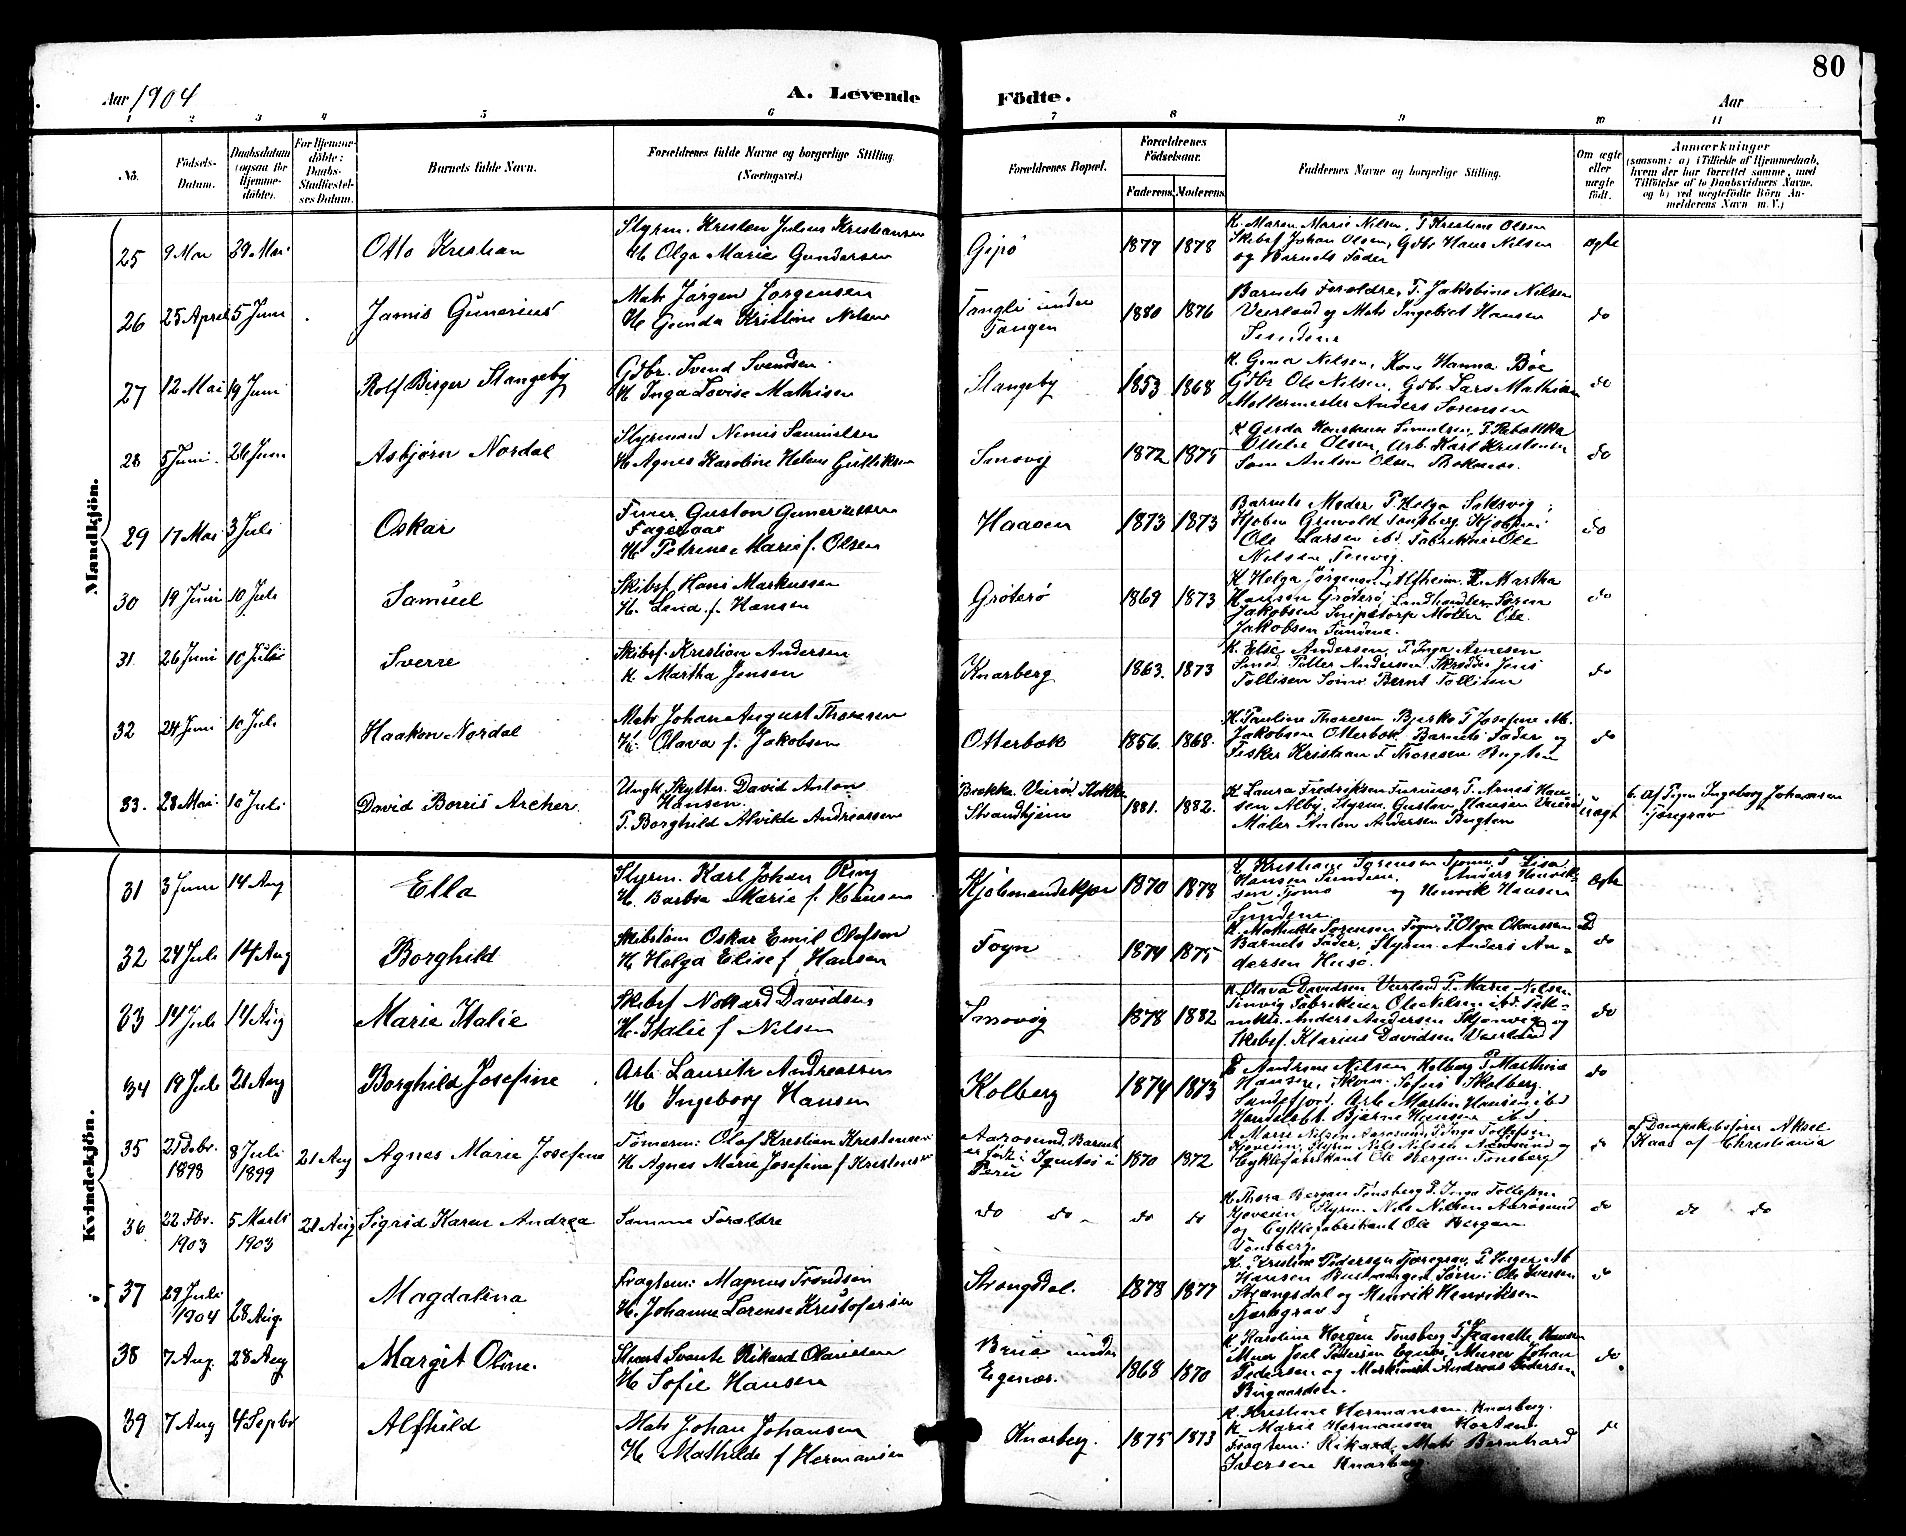 80
Aar 1904
A. Levende Födte.
Aar
1 2 3 4 5 6 7 8 9 10 11
No.
Födsels-Datum.
Daabsdatum (ogsaa for Hjemmedöbte).
For Hjemmedöbte: Daabs-Stadfæstelses Datum.
Barnets fulde Navn.
Forældrenes fulde Navne og borgerlige Stilling. (Næringsvei.)
Forældrenes Bopæl.
Forældrenes Födselsaar.
Faderens. Moderens.
Faddernes Navne og borgerlige Stilling.
Om ægte eller uægte födt.
Anmærkninger (saasom: a) i Tilfælde af Hjemmedaab, hvem der har forrettet samme, med Tilföielse af to Daabsvidners Navne, og b) ved uægtefödte Börn Anmelderens Navn m. V.)
Mandkjön.
25 9 Mai 29 Mai Otto Kristian
Styrm. Kristen Julius Kristiansen
H Olga Marie Gundersen
Gipö 1877 1878
K. Maren Marie Nilsen, P Kristine Olsen
Skibsf Johan Olsen, Gdbr Hans Nilsen
og Barnets Fader
ægte
26 25 April 5 Juni Jamis Gunerius
Matr Jörgen Jörgensen
H Gunda Kristine Nilsen
Tangli under
Tangen
1880 1876
Barnets Forældre, P. Jakobine Nilsen
Veierland og Matr Ingebret Hansen
Sundene
do
27 12 Mai 19 Juni Rolf Birger Stangeby
Gdbr. Svend Svendsen
H Inga Lovise Mathisen
Stangeby 1853 1868
K. Gina Nilsen, Kone Hanna Böe
Gdbr Ole Nilsen, Gdbr Lars Mathisen
Mollermester Anders Sörensen
do
28 5 Juni 26 Juni Asbjörn Nordal
Styrmand Nimis Samuelsen
H Agnes Karoline Helene Gulliksen
Smovig 1872 1875
Olsen, Arb. Karl Kristensen
Anton Olsen
do
29 17 Mai 3 Juli Oskar
Guston Gunerussen
Fagertaar
H. Petrine Marie f. Olsen
Haasen 1873 1873
Barnets Moder P Helga
Grunvold Tönsberg,
Ole Larsen ibd. Fabrikeier Ole
Nilsen Tenvig
do
30 19 Juni 10 Juli Samuel
Skibsf Hans Markussen
H. Lina f. Hansen
Gröterö 1869 1873
K Helga Jörgensen, Alfheim P. Martha
Hansen Gröterö, Landhandler Sören
Jakobsen Ole
Jakobsen Sundene.
do
31 26 Juni 10 Juli Sverre
Skibsf. Kristian Andersen
H. Martha Jensen
Knarberg 1863 1873
K. Else Andersen, P. Inga Arnesen
Smed Petter Andersen Skrædder Jens
Tollisen Sömö Bernt Tollisen
do
32 24 Juni 10 Juli Haakon Nordal
Matr Johan August Thoresen
H. Olava f. Jakobsen
Otterbæk 1856. 1868.
K Pauline Thoresen, Bjerkö P Josefine M.
Jakobsen Otterbæk, Barnets Fader og
Fisker Kristian F Thoresen Bugten
do
33. 28 Mai 10 Juli David Borris Archer
Ungk Skytter David Anton
Hansen.
P. Borghild Alvilde Andreassen
Brække Veierö Stokke
Strandhjem
1881. 1882.
K Laura Fredriksen P. Arnis Hansen
Alby, Styrm. Gustav Hansen
Maler Anton Andersen Bugten
uægt
b. Af Pigen Ingeborg Johansen
Tjøregrav
Kvindekjön.
31 3 Juni 14 Aug Ella
Styrm. Karl Johan Ring
H. Barbra Marie f. Hansen
Kjölmandskjær 1870 1878
K Kristiane Sörensen Tjömö P. Lisa
Hansen Sundene, Anders Henriksen
Tjömö og Henrik Hansen
Sundene
ægte
32 24 Juli 14 Aug Borghild
Skibstöm Oskar Emil Olofsen
H Helga Elise f Hansen
Togn 1874 1875
K. Mathilde Sorensen Togn, P. Olga Olaussen
Barnets Fader, Styrm. Anders Andersen
Husö.
do
33 14 Juli 14 Aug Marie Italie
Skibsf Nokard Davidsen
H. Italie f Nilsen
Smovig 1878 1882
K Olava Davidsen Veierland P. Marie Nilsen
Tenvig Fabrikeier Ole Nilsen ibd.
Anders Andersen og
Skibsf. Klarius Davidsen Veierland
do
34 19 Juli 21 Aug Borghild Josefine
Arb. Lauritz Andreassen
H Ingeborg Hansen
Kolberg 1874 1873
K Andrine Nilsen Kolberg P Mathea
Hansen,
Sandefjord. Arb. Martin Hansen ibd
Bjarne Hansen ibd.
do
35 21 Debr. 1898 8 Juli 1899 21 Aug Agnes Marie Josefine
Tömerm: Olaf Kristian Kristensen
H Agnes Marie Josefine f Kristensen
Aarøsund, Barnet
er født i i
Peru
1870 1872
K. Marie Nilsen Aarøsund P Inga Tollefsen
Styrm. Nils Nilsen Aarøsund og
Cyklefabrikant Ole Bergan Tönsberg
do
af Dampskibsfører Aksel
Haas af Christiania
36 22 Fbr. 1903 5 Marts 1903 21 Aug Sigrid Karen Andrea
Samme Forældre
do do do do
K Thora Bergan Tønsberg P. Inga Tollefsen
Styrm. Nils Nilsen Aarøsund
og Cyklefabrikant Ole Bergan
Tönsberg.
do do do
37 29 Juli 1904 28 Aug. Magdalina
Fragtem: Magnus Trondsen
H. Johanne Lorense Kristofersen
Strengsdal. 1878 1877
K. Kristine Pedersen Tjøregrav, P. Inger
Hansen Ole Iversen
Strængsdal og Henrik Henriksen
Tjøregrav
do
38 7 Aug. 28 Aug Margit Oline.
Stuert Svante Rikard Olausen
H Sofie Hansen
Brua under
Egenæs.
1868 1870
K Karoline Horgen Tønsberg P Jeanette Hansen
Murer Joel Pedersen Egenæs, Murer Johan
Pedersen og Maskinist Andreas Pedersen
Burgaarden.
do
39 7 Aug 4 Septbr Alfhild
Matr Johan Johansen
H Mathilde f Hermansen
Knarberg. 1875 1873
K. Kristine Hermansen Knarberg.
K Marie Hermansen Horten.
Fragtem: Rikard, Matr Bernhard
Iversen Knarberg
do